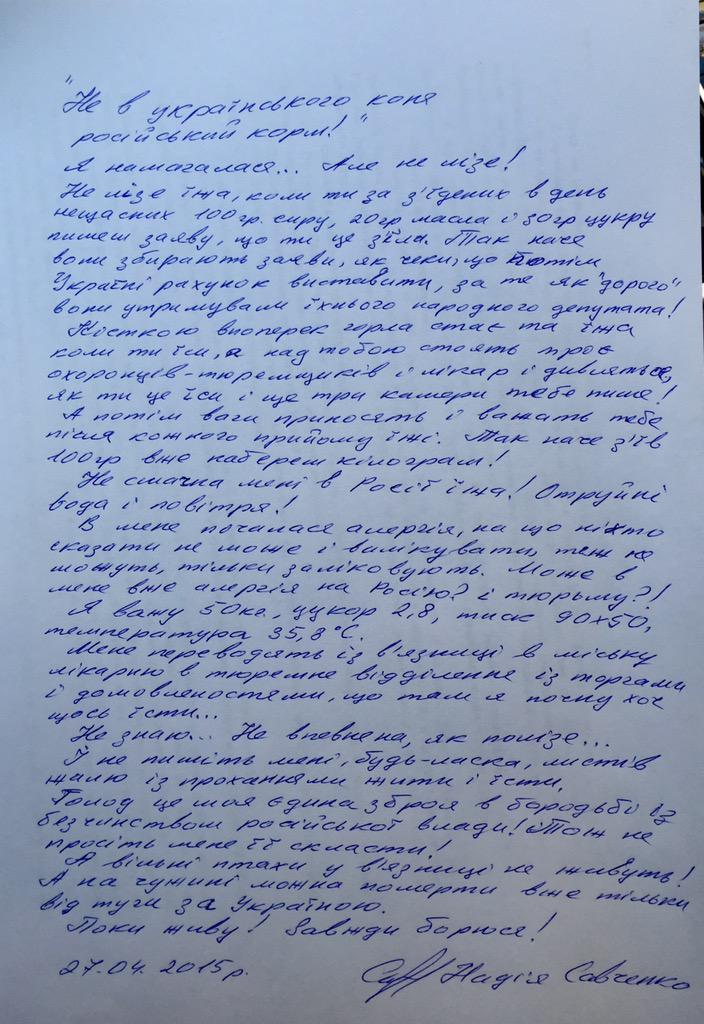 "Не в українського коня
російський корм!"
Я намагалася... Але не лізе!
Не лізе їжа, коли ти за з'їдених в день
нещасних 100гр. сиру, 20гр масла і 30гр цукру
пишеш заяву, що ти це з'їла. Так наче
вони збирають заяви, як чеки, що потім
Україні рахунок виставити, за те як "дорого"
вони утримували їхнього народного депутата!
Кісткою впоперек горла стає та їжа
коли ти їси, а над тобою стоять троє
охоронців-тюремщиків і лікар і дивляться,
як ти це їси і ще три камери тебе пише!
А потім ваги приносять і важать тебе
після кожного прийому їжі. Так наче з'їв
100гр вже наберем кілограм!
Не смачна мені в Росії їжа! Отруйні
вода і повітря!
В мене почалася алергія, на що ніхто
сказати не може і вилікувати теж не
можуть, тільки заліковують. Може в
мене вже алергія на Росію? і тюрьму?!
Я важу 50кг., цукор 2,8, тиск 90×50,
температура 35,8°С.
Мене переводять із в'язниці в міську
лікарню в тюремне відділення із торгами
і домовленостями, що там я почну хоч
щось їсти...
Не знаю... Не впевнена, як полізе...
І не пишіть мені, будь-ласка, листів
жалю із проханнями жити і їсти.
Голод це моя єдина зброя в бородьбі із
безчинством російської влади! Тож не
просіть мене її скласти!
А вільні птахи у в'язниці не живуть!
А на чужині можна померти вже тільки
від туги за Україною.
Поки живу! Завжди борюся!
27.04.2015р. Надія Савченко